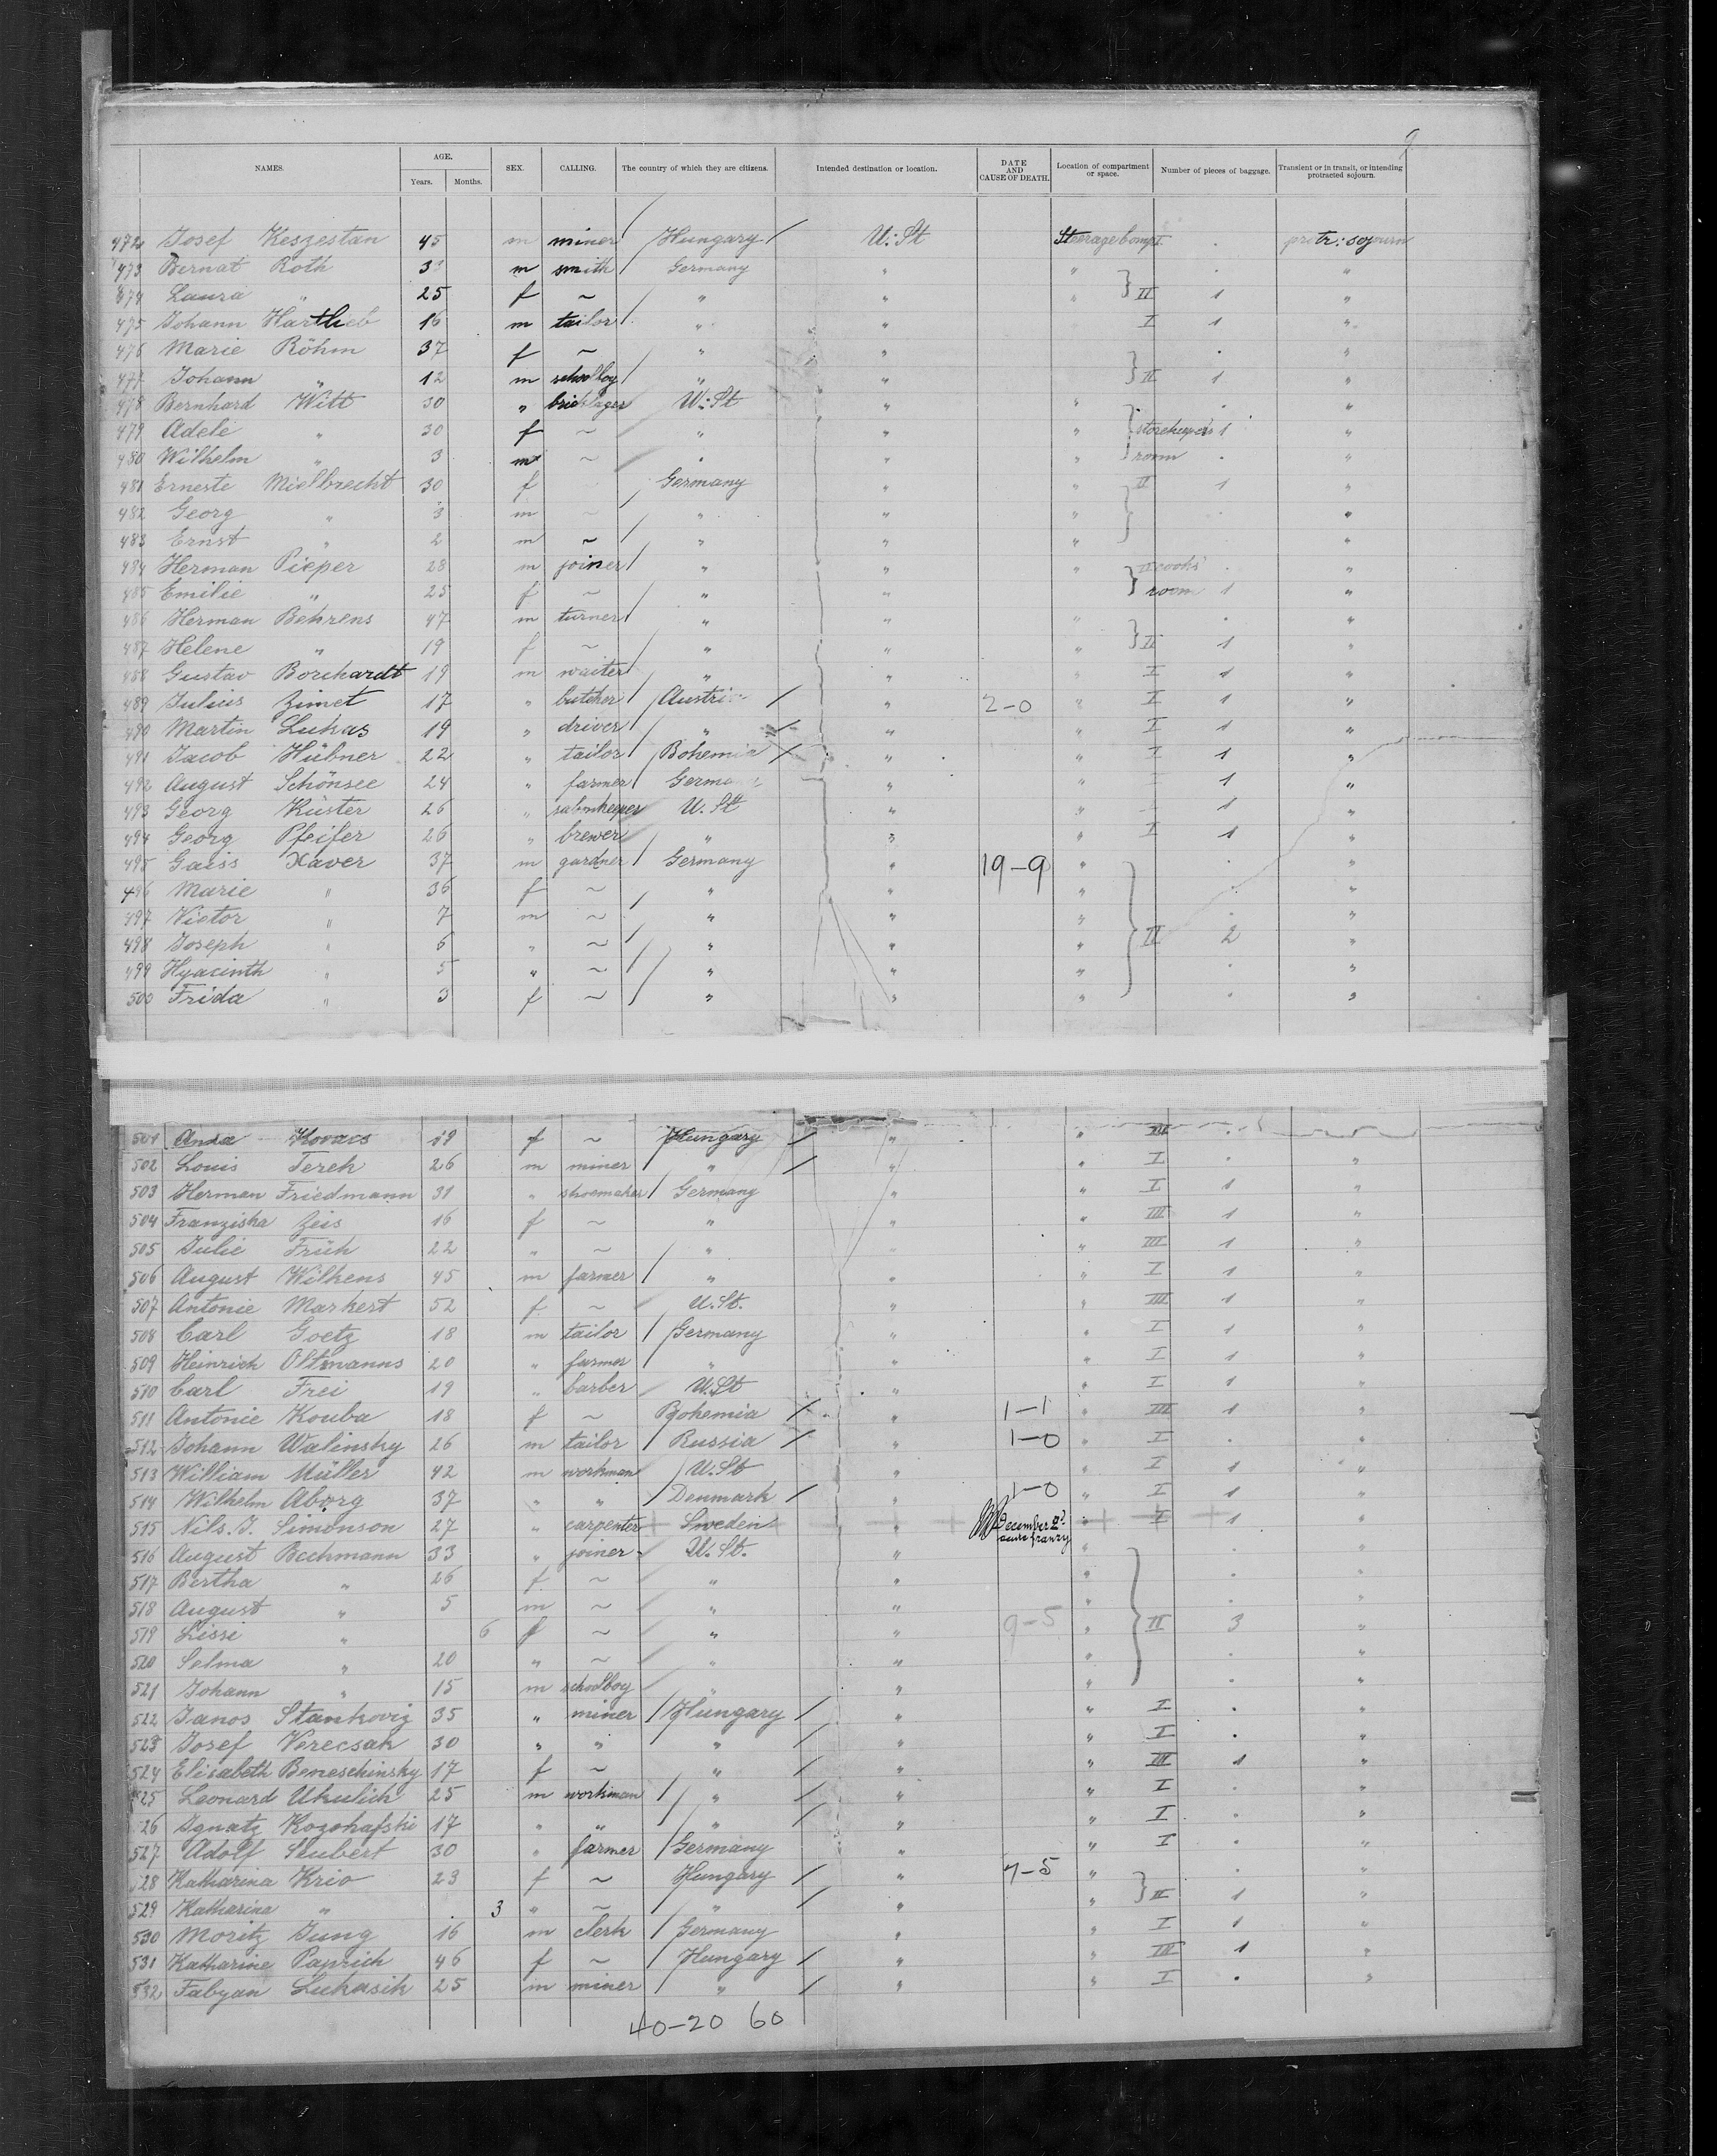 NAMES. AGE. Years. Months. SEX. CALLING. The country of which they are citizens. Intended destination or location. DATE AND CAUSE OF DEATH. Location of compartment or space. Number of pieces of baggage. Transient or in transit, or intending protracted sojourn.
472 Josef Keszestan 45 m miner Hungary U: St Steerage Compt. protr: sojourn
473 Bernat Roth 33 m smith Germany " " "
474 Laura " 25 f ~ " " " II 1 "
475 Johann Hartlieb 16 m tailor " " I 1 "
476 Marie Röhm 37 f ~ " " "
477 Johann " 12 m schoolboy " " II 1 "
478 Bernhard Witt 30 " bricklayer U: St " " "
479 Adele " 30 f ~ " " " storekeepers 1 "
480 Wilhelm " 3 m ~ " " " room "
481 Erneste Mielbrecht 30 f Germany " " II 1 "
482 Georg " 3 m ~ " " " "
483 Ernst " 2 m ~ " " " "
484 Herman Pieper 28 m joiner " " " II cooks' "
485 Emilie " 25 f ~ " " room 1 "
486 Herman Behrens 47 m turner " " " "
487 Helene " 19 f ~ " " " II 1 "
488 Gustav Borchardt 19 m waiter " " " I 1 "
489 Julius Zimet 17 " butcher Austria " 2-0 " I 1 "
490 Martin Lukas 19 " driver " " " I 1 "
491 Jacob Hübner 22 " tailor Bohemia " " I 1 "
492 August Schönsee 24 " farmer Germany " " I 1 "
493 Georg Küster 26 " saloonkeeper U. St " " I 1 "
494 Georg Pfeifer 26 " brewer " " " I 1 "
495 Gaiss Xaver 37 m gardner Germany " 19-9 " "
496 Marie " 36 f ~ " " " "
497 Victor " 7 m ~ " " " "
498 Joseph " 6 " ~ " " " II 2 "
499 Hyacinth " 5 " ~ " " " "
500 Frida " 3 f ~ " " " "
501 Anna Kovacs 19 f ~ Hungary " " III
502 Louis Terek 26 m miner " " " I "
503 Herman Friedmann 31 " shoemaker Germany " " I 1 "
504 Franziska Zeis 16 f ~ " " " III 1 "
505 Julie Früh 22 " ~ " " III 1 "
506 August Wilkens 45 m farmer " " " I 1 "
507 Antonie Markert 52 f ~ U. St. " " III 1 "
508 Carl Goetz 18 m tailor Germany " " I 1 "
509 Heinrich Oltmanns 20 " farmer " " " I 1 "
510 Carl Frei 19 " barber U. St " " I 1 "
511 Antonie Kouba 18 f ~ Bohemia " 1-1 " III 1 "
512 Johann Walinsky 26 m tailor Russia " 1-0 " I "
513 William Müller 42 m workman U. St " " I 1 "
514 Wilhelm Aborg 37 " " Denmark " 1-0 " I 1 "
515 Nils. J. Simonson 27 " carpenter Sweden " December 2d " I 1 "
516 August Bechmann 33 " joiner U. St. " " "
517 Bertha " 26 f ~ " " " "
518 August " 5 m ~ " " " "
519 Lissi " 6 f ~ " " 9-5 " II 3 "
520 Selma " 20 " ~ " " " "
521 Johann " 15 m schoolboy " " " "
522 Janos Stankoviz 35 " miner Hungary " " I "
523 Josef Verecsak 30 " " " " " I "
524 Elisabeth Beneschinsky 17 f ~ " " " III 1 "
525 Leonard Ukulich 25 m workman " " " I "
26 Ignatz Kozohafski 17 " " " " " I "
527 Adolf Seubert 30 " farmer Germany " " I "
528 Katharina Krio 23 f ~ Hungary " 7-5 " "
529 Katharina " 3 " ~ " " " II 1 "
530 Moritz Jung 16 m clerk Germany " " I 1 "
531 Katharine Paprich 46 f ~ Hungary " " III 1 "
532 Fabyan Lukasik 25 m miner " " " I "
40-20 60